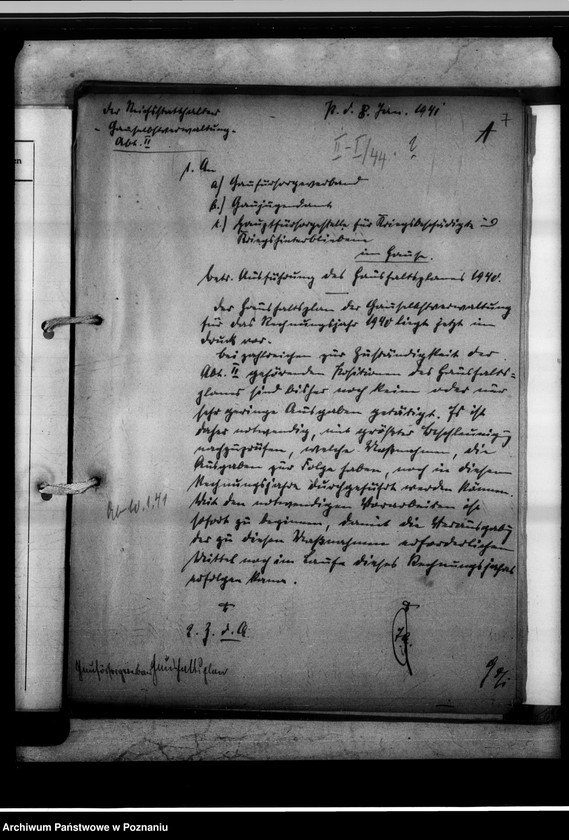 Der Reichsstatthalter
- Gauselbstverwaltung -
Abt. II
P. d. 8. Jan. 1941
7
II-I/44. 2
1. An
a) Gaufürsorgeverband
b.) Gaujugendamt
c.) Hauptfürsorgestelle für Kriegsbeschädigte und
Kriegshinterbliebene
im Hause.
betr. Ausführung des Haushaltsplans 1940.
Der Haushaltsplan der Gauselbstverwaltung
für das Rechnungsjahr 1940 liegt jetzt im
Druck vor.
Bei zahlreichen zur Zuständigkeit der
Abt. II gehörenden Positionen des Haushalts=
plans sind bisher noch keine oder nur
sehr geringe Ausgaben getätigt. Es ist
daher notwendig, mit größter Beschleunigung
nachzuprüfen, welche Maßnahmen, die
Ausgaben zur Folge haben, noch in diesem
Rechnungsjahre durchgeführt werden können.
Mit den notwendigen Vorarbeiten ist
sofort zu beginnen, damit die Verausgabung
der zu diesen Maßnahmen erforderlichen
Mittel noch im Laufe dieses Rechnungsjahres
erfolgen kann.
ab 10.1.41
2. Z. d. A.
Gaufürsorgeverband Haushaltsplan
9/I
Archiwum Państwowe w Poznaniu